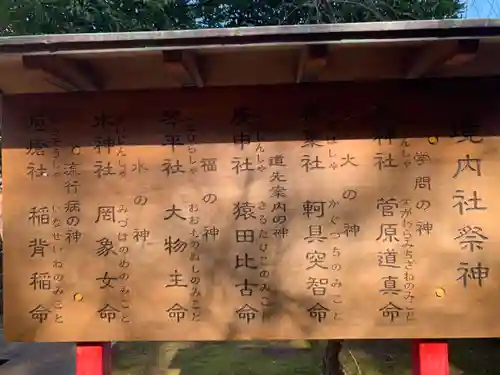 境内社祭神
学問の神
神社 菅原道真命
すがわらみちざねのみこと
火の神
葉社 軻具突智命
かぐつちのみこと
道先案内の神
庚申社 猿田比古命
さるたひこのみこと
福の神
琴平社 大物主命
おおものぬしのみこと
水の神
水神社 罔象女命
みづはのめのみこと
流行病の神
疱瘡社 稲背稲命
いなせいねのみこと